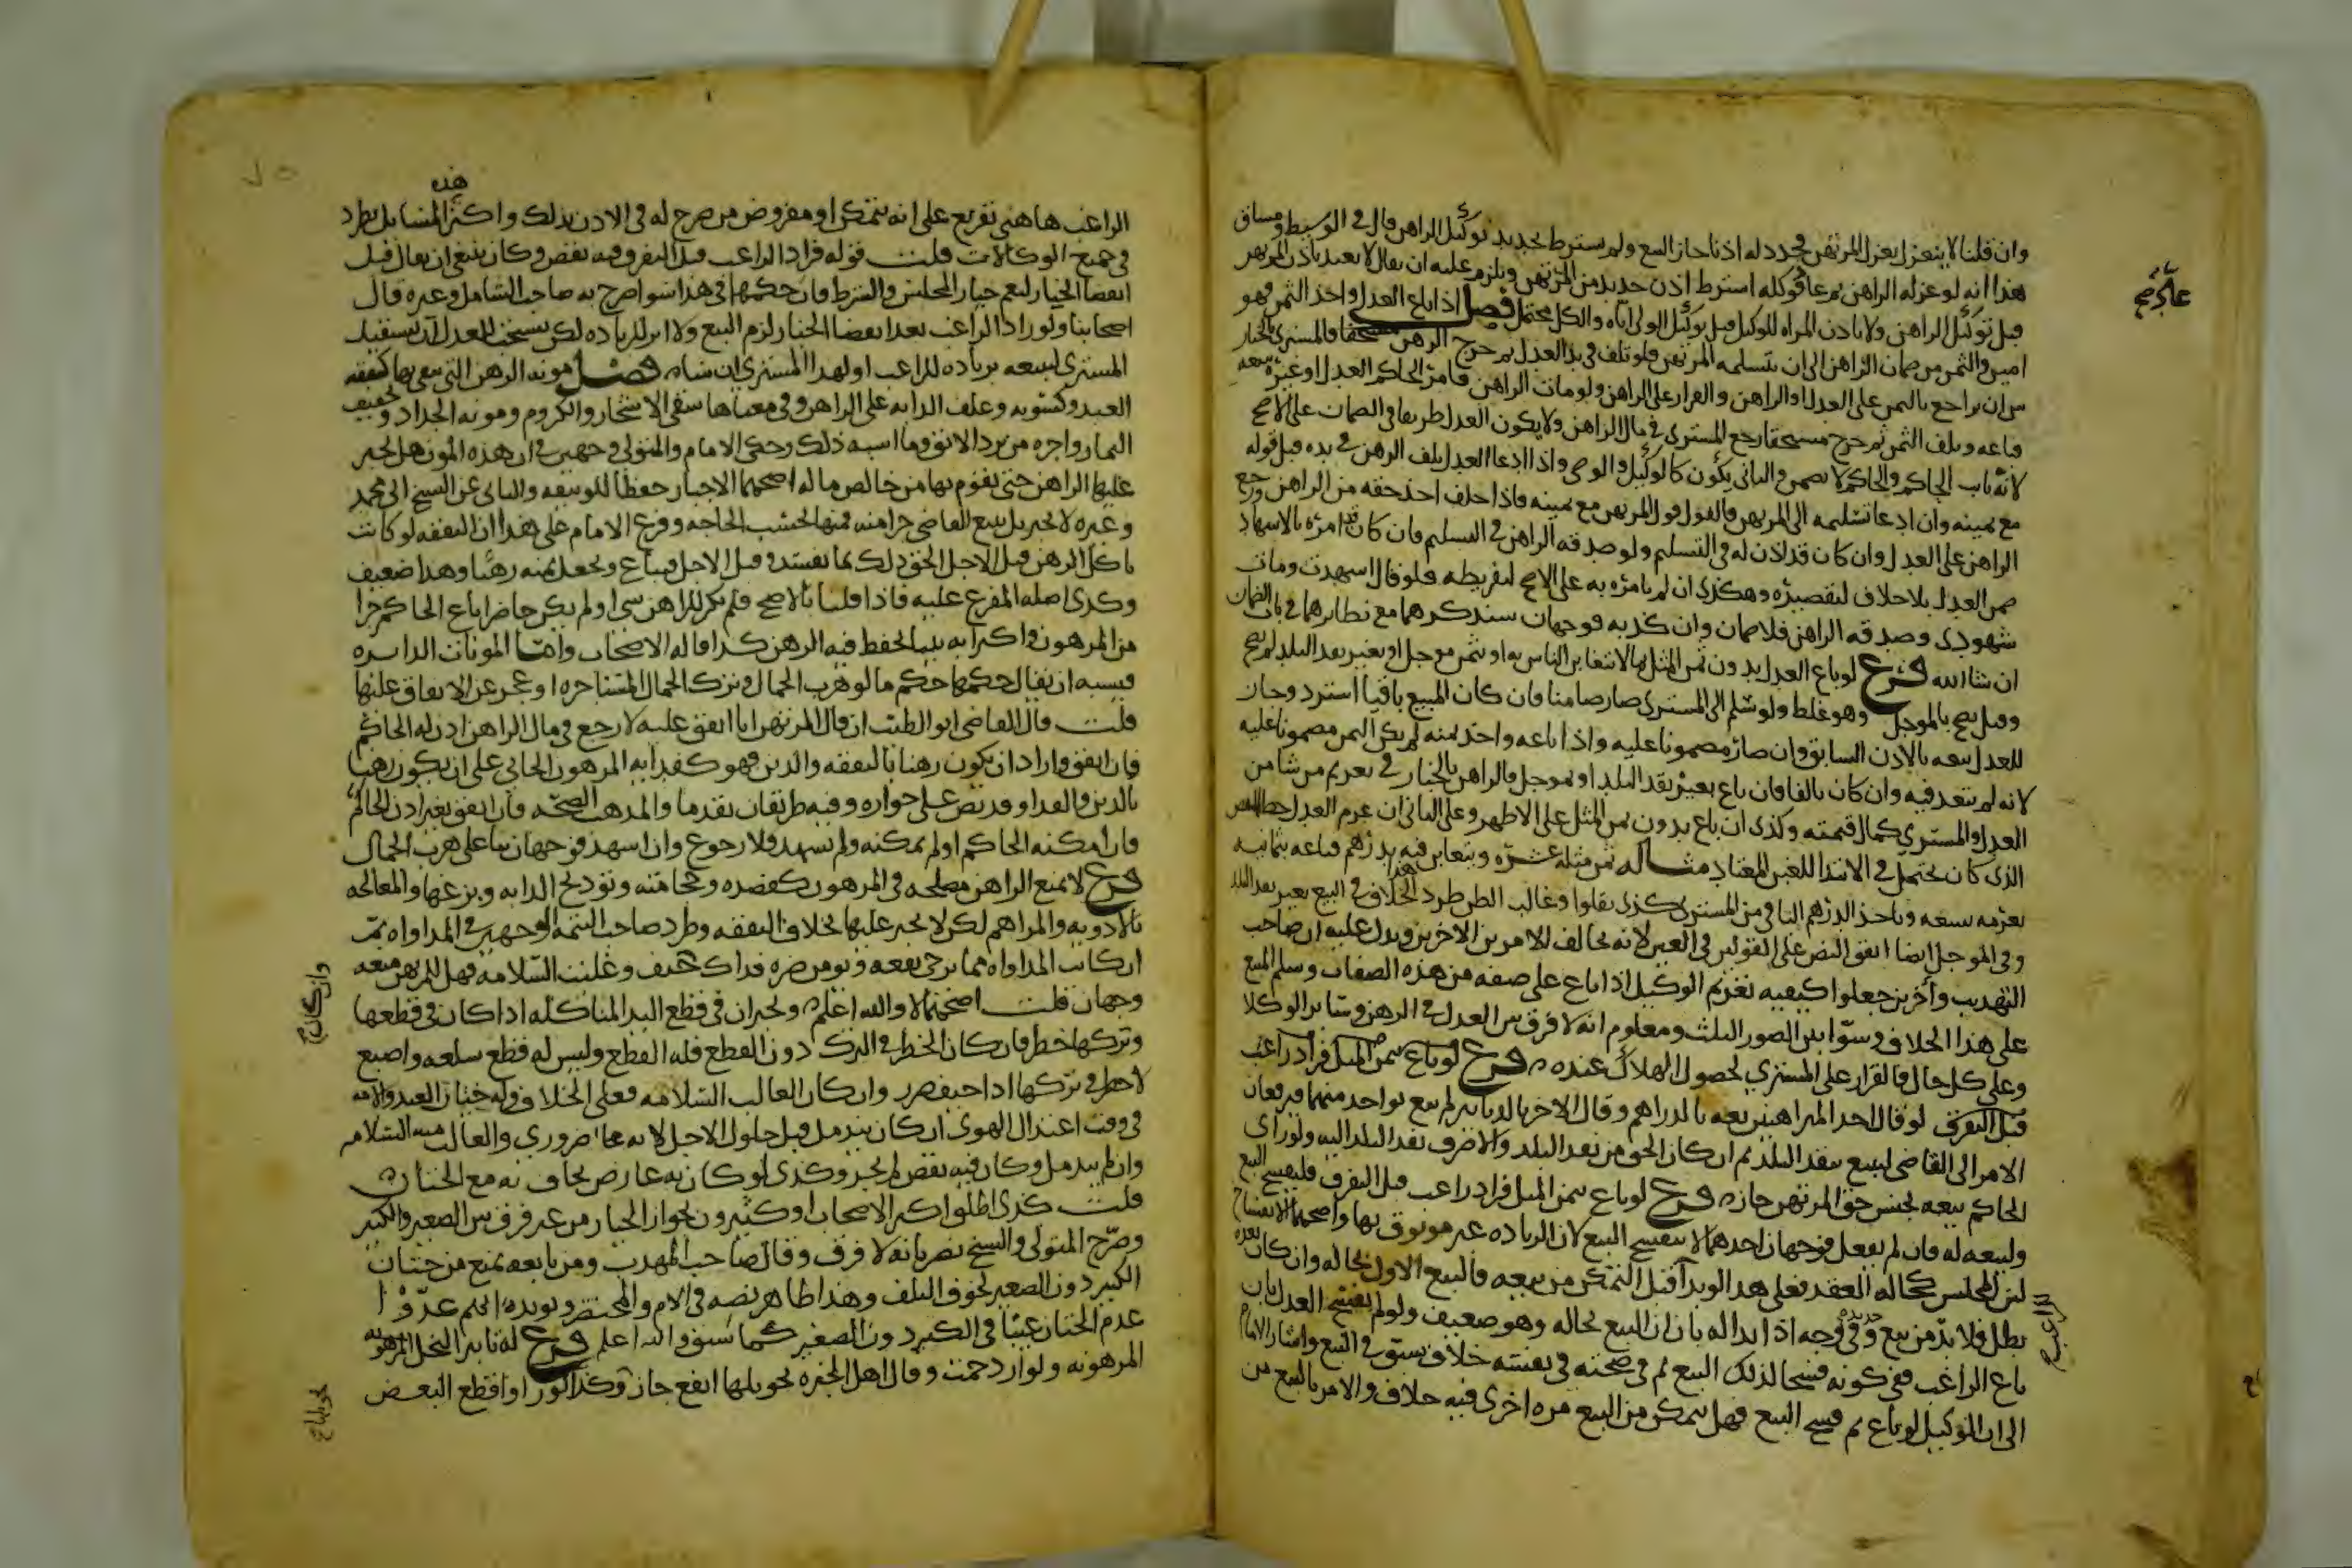 وان قلنا لا ينعزل بعزل المرتهن فجدد له اذنا جاز البيع ولم يشترط تجديد توكيل الراهن قال في الوسيط ومساق
هذا انه لو عزله الراهن ثم عاد فوكله اشترط اذن جديد من المرتهن ويلزم عليه ان يقال لا يعتد باذن المرتهن
قبل توكيل الراهن ولا باذن المراه للوكيل قبل توكيل الولي اياه والكل محتمل فصل اذا باع العدل واخذ الثمن فهو
امين والثمن من ضمان الراهن الى ان يتسلمه المرتهن فلو تلف في يد العدل ثم خرج الرهن مستحقا فالمشتري بالخيار
بين ان يراجع بالثمن على العدل او الراهن والقرار على الراهن ولو مات الراهن فامر الحاكم العدل او غيره ببيعه
فباعه وتلف الثمن ثم خرج مستحقا رجع المشتري في مال الراهن ولا يكون العدل طريقا في الضمان على الاصح
لانه نايب الحاكم والحاكم لا يضمن والثاني يكون كالوكيل والوصي واذا ادعا العدل تلف الرهن في يده قبل قوله
مع يمينه وان ادعا تسليمه الى المرتهن فالقول قول المرتهن مع يمينه فاذا حلف اخذ حقه من الراهن ورجع
الراهن على العدل وان كان قد اذن له في التسليم ولو صدقه الراهن في التسليم فان كان قد امره بالاشهاد
ضمن العدل بلا خلاف لتقصيره وهكذى ان لم يامره به على الاصح لتفريطه فلو قال اشهدت ومات
شهودي وصدقه الراهن فلا ضمان وان كذبه فوجهان سنذكرهما مع نظائرهما في باب الضمان
ان شا الله فرع لو باع العدل بدون ثمن المثل بما لا يتغابن الناس به او بثمن موجل او بغير نقد البلد لم يصح
وقيل يصح بالموجل وهو غلط ولو سلم الى المشتري صار ضامنا فان كان المبيع باقيا استرد وجاز
للعدل بيعه بالاذن السابق وان صار مضمونا عليه واذا باعه واخذ ثمنه لم يكن الثمن مضمونا عليه
لانه لم يتعد فيه وان كان تالفا فان باع بغير نقد البلد او بموجل فالراهن بالخيار في تغريم من شا من
العدل والمشتري كمال قيمته وكذى ان باع بدون ثمن المثل على الاظهر وعلى الثاني ان غرم العدل حط النقص
الذي كان يحتمل في الابتدا للغبن المعتاد مثاله ثمن مثله عشره ويتغابن فيه بدرهم فباعه بثمانيه
نغرمه تسعه وياخذ الدرهم الباقي من المشتري كذى نقلوا وغالب الظن طرد هذا الخلاف في البيع بغير نقد البلد
وفي الموجل ايضا اتفق النص على القولين في الغبن لانه يخالف الامرين الاخرين ويدل عليه ان صاحب
التهذيب وآخرين جعلوا كيفيه تغريم الوكيل اذا باع على صفه من هذه الصفات وسلم المبيع
على هذا الخلاف وسوا بين الصور الثلث ومعلوم انه لا فرق بين العدل في الرهن وساير الوكلا
وعلى كل حال فالقرار على المشتري لحصول الهلاك عنده فرع لو باع بثمن المثل فزاد راغب
قبل التفرق لو قال احد المتراهنين بعه بالدراهم وقال الاخر بالدنانير لم يبع بواحد منهما فيرفعان
الامر الى القاضي ليبيع بنقد البلد ثم ان كان الحق من نقد البلد والا صرف نقد البلد اليه ولو راى
الحاكم بيعه بجنس حق المرتهن جاز فرع لو باع بثمن المثل فزاد راغب قبل التفرق فليفسخ البيع
وليبعه له فان لم يفعل فوجهان احدهما لا ينفسخ البيع لان الزياده غير موثوق بها واصحهما الانفساخ
لان المجلس كحاله العقد فعلى هذا لو بدا قبل التمكن من بيعه فالبيع الاول بحاله وان كان بعده
بطل فلا بد من بيع جديد وفي وجه اذا بدا له بان ان البيع بحاله وهو ضعيف ولو لم يفسخ العدل بل
باع الراغب ففي كونه فسخا لذلك البيع ثم في صحته في نفسه خلاف سبق في البيع واشار الامام
الى ان الوكيل لو باع ثم فسخ البيع فهل يتمكن من البيع مره اخرى فيه خلاف والامر بالبيع من
الراغب هاهنا تفريع على انه يتمكن او مفروض من صرح له في الاذن بذلك واكثر هذه المسايل يطرد
في جميع الوكالات قلت قوله فزاد الراغب قبل التفرق فيه نقص وكان ينبغي ان يقال قبل
انقضا الخيار ليعم خيار المجلس والشرط فان حكمهما في هذا سوا صرح به صاحب الشامل وغيره قال
اصحابنا ولو زاد الراغب بعد انقضا الخيار لزم البيع ولا اثر للزياده لكن يستحب للعدل ان يستقيل
المشتري ليبيعه بزياده للراغب او لهذا المشتري ان شا فصل مونه الرهن التي يبقى بها كنفقه
العبد وكسوته وعلف الدابه على الراهن وفي معناها سقي الاشجار والكروم ومونه الجداد وتجفيف
الثمار واجره من يرد الابق وما اشبه ذلك وحكى الامام والمتولي وجهين في ان هذه المون هل يجبر
عليها الراهن حتى يقوم بها من خالص ماله اصحهما الاجبار حفظا للوثيقه والثاني عن الشيخ ابي محمد
وغيره لا يجبر بل يبيع القاضي جزا منه فيها بحسب الحاجه وفرع الامام على هذا ان النفقه لو كانت
تاكل الرهن قبل الاجل الحق ذلك بما يفسد قبل الاجل فيباع ويجعل ثمنه رهنا وهذا ضعيف
وكذى اصله المفرع عليه فاذا قلنا بالاصح فلم يكن للراهن شي او لم يكن حاضرا باع الحاكم جزا
من المرهون واكترا به بيتا يحفظ فيه الرهن كذا قاله الاصحاب واما المونات الدايره
فيشبه ان يقال حكمها حكم ما لو هرب الجمال وترك الجمال المستاجره او عجز عن الانفاق عليها
قلت قال القاضي ابو الطيب ان قال المرتهن انا انفق عليه لارجع في مال الراهن اذن له الحاكم
فان انفق واراد ان يكون رهنا بالنفقه والدين فهو كفدايه المرهون الجاني على ان يكون رهنا
بالدين والفدا وقد نص على جوازه وفيه طريقان تقدما والمذهب الصحه فان انفق بغير اذن الحاكم
فان امكنه الحاكم او لم يمكنه ولم يشهد فلا رجوع وان اشهد فوجهان بنا على هرب الجمال
فرع لا يمنع الراهن مصلحه في المرهون كفصده وحجامته وتوديج الدابه وبزغها والمعالجه
بالادويه والمراهم لكن لا يجبر عليها بخلاف النفقه وطرد صاحب التتمه الوجهين في المداواه ثم
ان كانت المداواه مما يرجى نفعه ويومن ضره فذاك وان كان يخاف وغلبت السلامه فهل للمرتهن منعه
وجهان قلت اصحهما لا والله اعلم ويجريان في قطع اليد المتاكله اذا كان في قطعها
وتركها خطر فان كان الخطر في الترك دون القطع فله القطع وليس له قطع سلعه واصبع
لا خطر في تركها اذا خيف ضرر وان كان الغالب السلامه فعلى الخلاف وله ختان العبد والامه
في وقت اعتدال الهوى ان كان يندمل قبل حلول الاجل لانه ضروري والغالب منه السلامه
وان لم يندمل وكان فيه نقص لم يجز وكذى لو كان به عارض يخاف منه مع الختان
قلت كذى اطلق اكثر الاصحاب او كثيرون بجواز الختان من غير فرق بين الصغير والكبير
وصرح المتولي والشيخ نصر بانه لا فرق وقال صاحب المهذب ومن تابعه يمنع من ختان
الكبير دون الصغير لخوف التلف وهذا ظاهر نصه في الام والمختصر ويويده انهم عدوا
عدم الختان عيبا في الكبير دون الصغير كما سبق والله اعلم فرع له تابير النخل المرهونه
المرهونه ولو ازدحمت وقال اهل الخبره تحويلها انفع جاز وكذا لو راوا قطع البعض